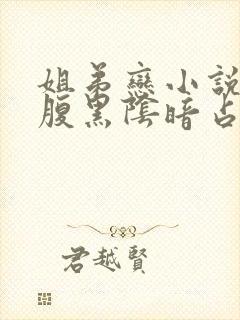 姐弟戀小說
腹黑陰暗占
君越賢